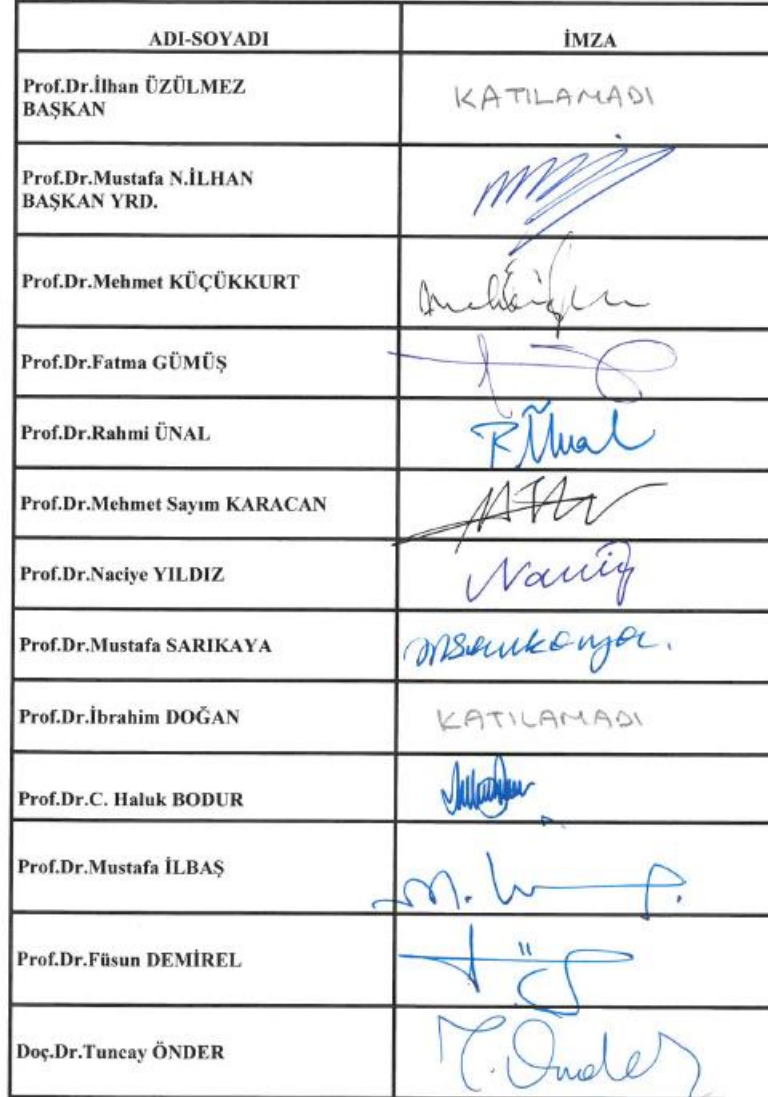 ADI-SOYADI İMZA
Prof.Dr.İlhan ÜZÜLMEZ
BAŞKAN
KATILAMADI
Prof.Dr.Mustafa N.İLHAN
BAŞKAN YRD.
Prof.Dr.Mehmet KÜÇÜKKURT
Prof.Dr.Fatma GÜMÜŞ
Prof.Dr.Rahmi ÜNAL
R Ünal
Prof.Dr.Mehmet Sayım KARACAN
Prof.Dr.Naciye YILDIZ
Prof.Dr.Mustafa SARIKAYA
msarıkaya.
Prof.Dr.İbrahim DOĞAN
KATILAMADI
Prof.Dr.C. Haluk BODUR
Prof.Dr.Mustafa İLBAŞ
Prof.Dr.Füsun DEMİREL
Doç.Dr.Tuncay ÖNDER
T. Önder